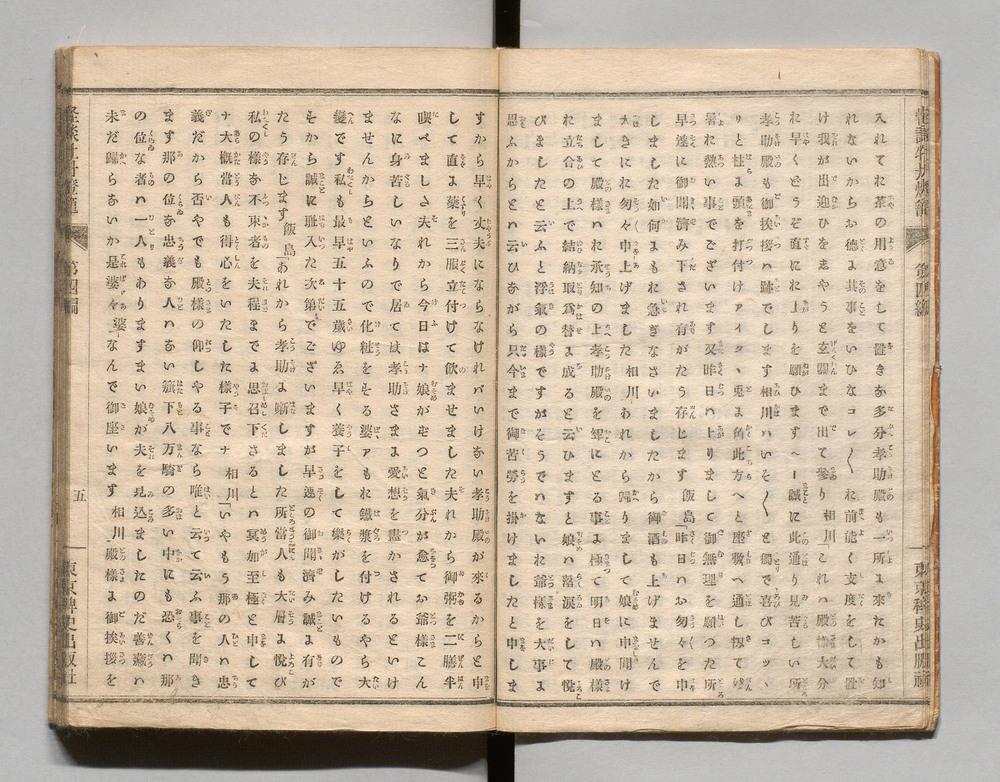 入れてお茶の用意をして置き多分孝助殿も一所に來たかも知
れないからお德に其事をいひなコレ〳〵お前能く支度をして置
け我が出迎ひをしやうと玄關まで出て參り 相川「これハ殿樣大分
お早くどうぞ直にお上りを願ひます～ー誠に此通り見苦しい所
孝助殿も御挨拶ハ跡でします相川ハいそ〳〵と獨で喜びコッヽ
リと柱に頭を打付けアイタヽ兎に角此方へと座敷へ通し扨て
暑お熱い事でございます又昨日ハ上りまして御無理を願つた所
早速に御聞濟み下され有がたう存じます 飯島「昨日ハお匆々を申
しました如何にもお急ぎなさいましたから御酒も上げませんで
大きにお匆々申上げました 相川あれから歸りまして娘に申聞け
まして殿樣がお承知の上孝助殿を聟にとる事に極て明日ハ殿樣
お立合の上で結納取爲替に成ると云ひますと娘ハ落淚をして悅
びましたと云ふと浮氣の樣ですがそうでハないお爺樣を大事に
思ふからとハ云ひながら只今まで御苦勞を掛けましたと申しま
すから早く丈夫にならなけれバいけない孝助殿が來るからと申
して直に藥を三服立付けて飮ませました夫れから御粥を二膳半
喫べましさ夫れから今日はナ娘がずつと氣分が癒てお爺樣こん
なに身苦しいなりで居てハ孝助さまに愛想を盡かされるといけ
ませんからといふので化粧をする婆アもお鐵漿を付けるやら大
變です私も最早五十五歳ゆゑ早く養子をして樂がしたいもので
すから誠に耻入た次第でございますが早速の御聞濟み誠に有が
たう存じます 飯島「あれから孝助に噺しました所當人も大層に悅び
私の樣な不束者を夫程までに思召下さるとハ冥加至極と申して
ナ大概當人も得心をいたした樣子でナ 相川「いやもう那の人ハ忠
義だから否やでも殿樣の仰しやる事なら唯と云て云ふ事を聞き
ます那の位な忠義な人ハない旗下八万騎の多い中にも恐くハ那
の位な者ハ一人もありますまい娘が夫を見込ましたのだ善藏ハ
未だ歸らないか是婆々 婆「なんで御座います 相川「殿樣に御挨拶を
怪談牡丹燈籠
第四編
五
東京稗史出版社